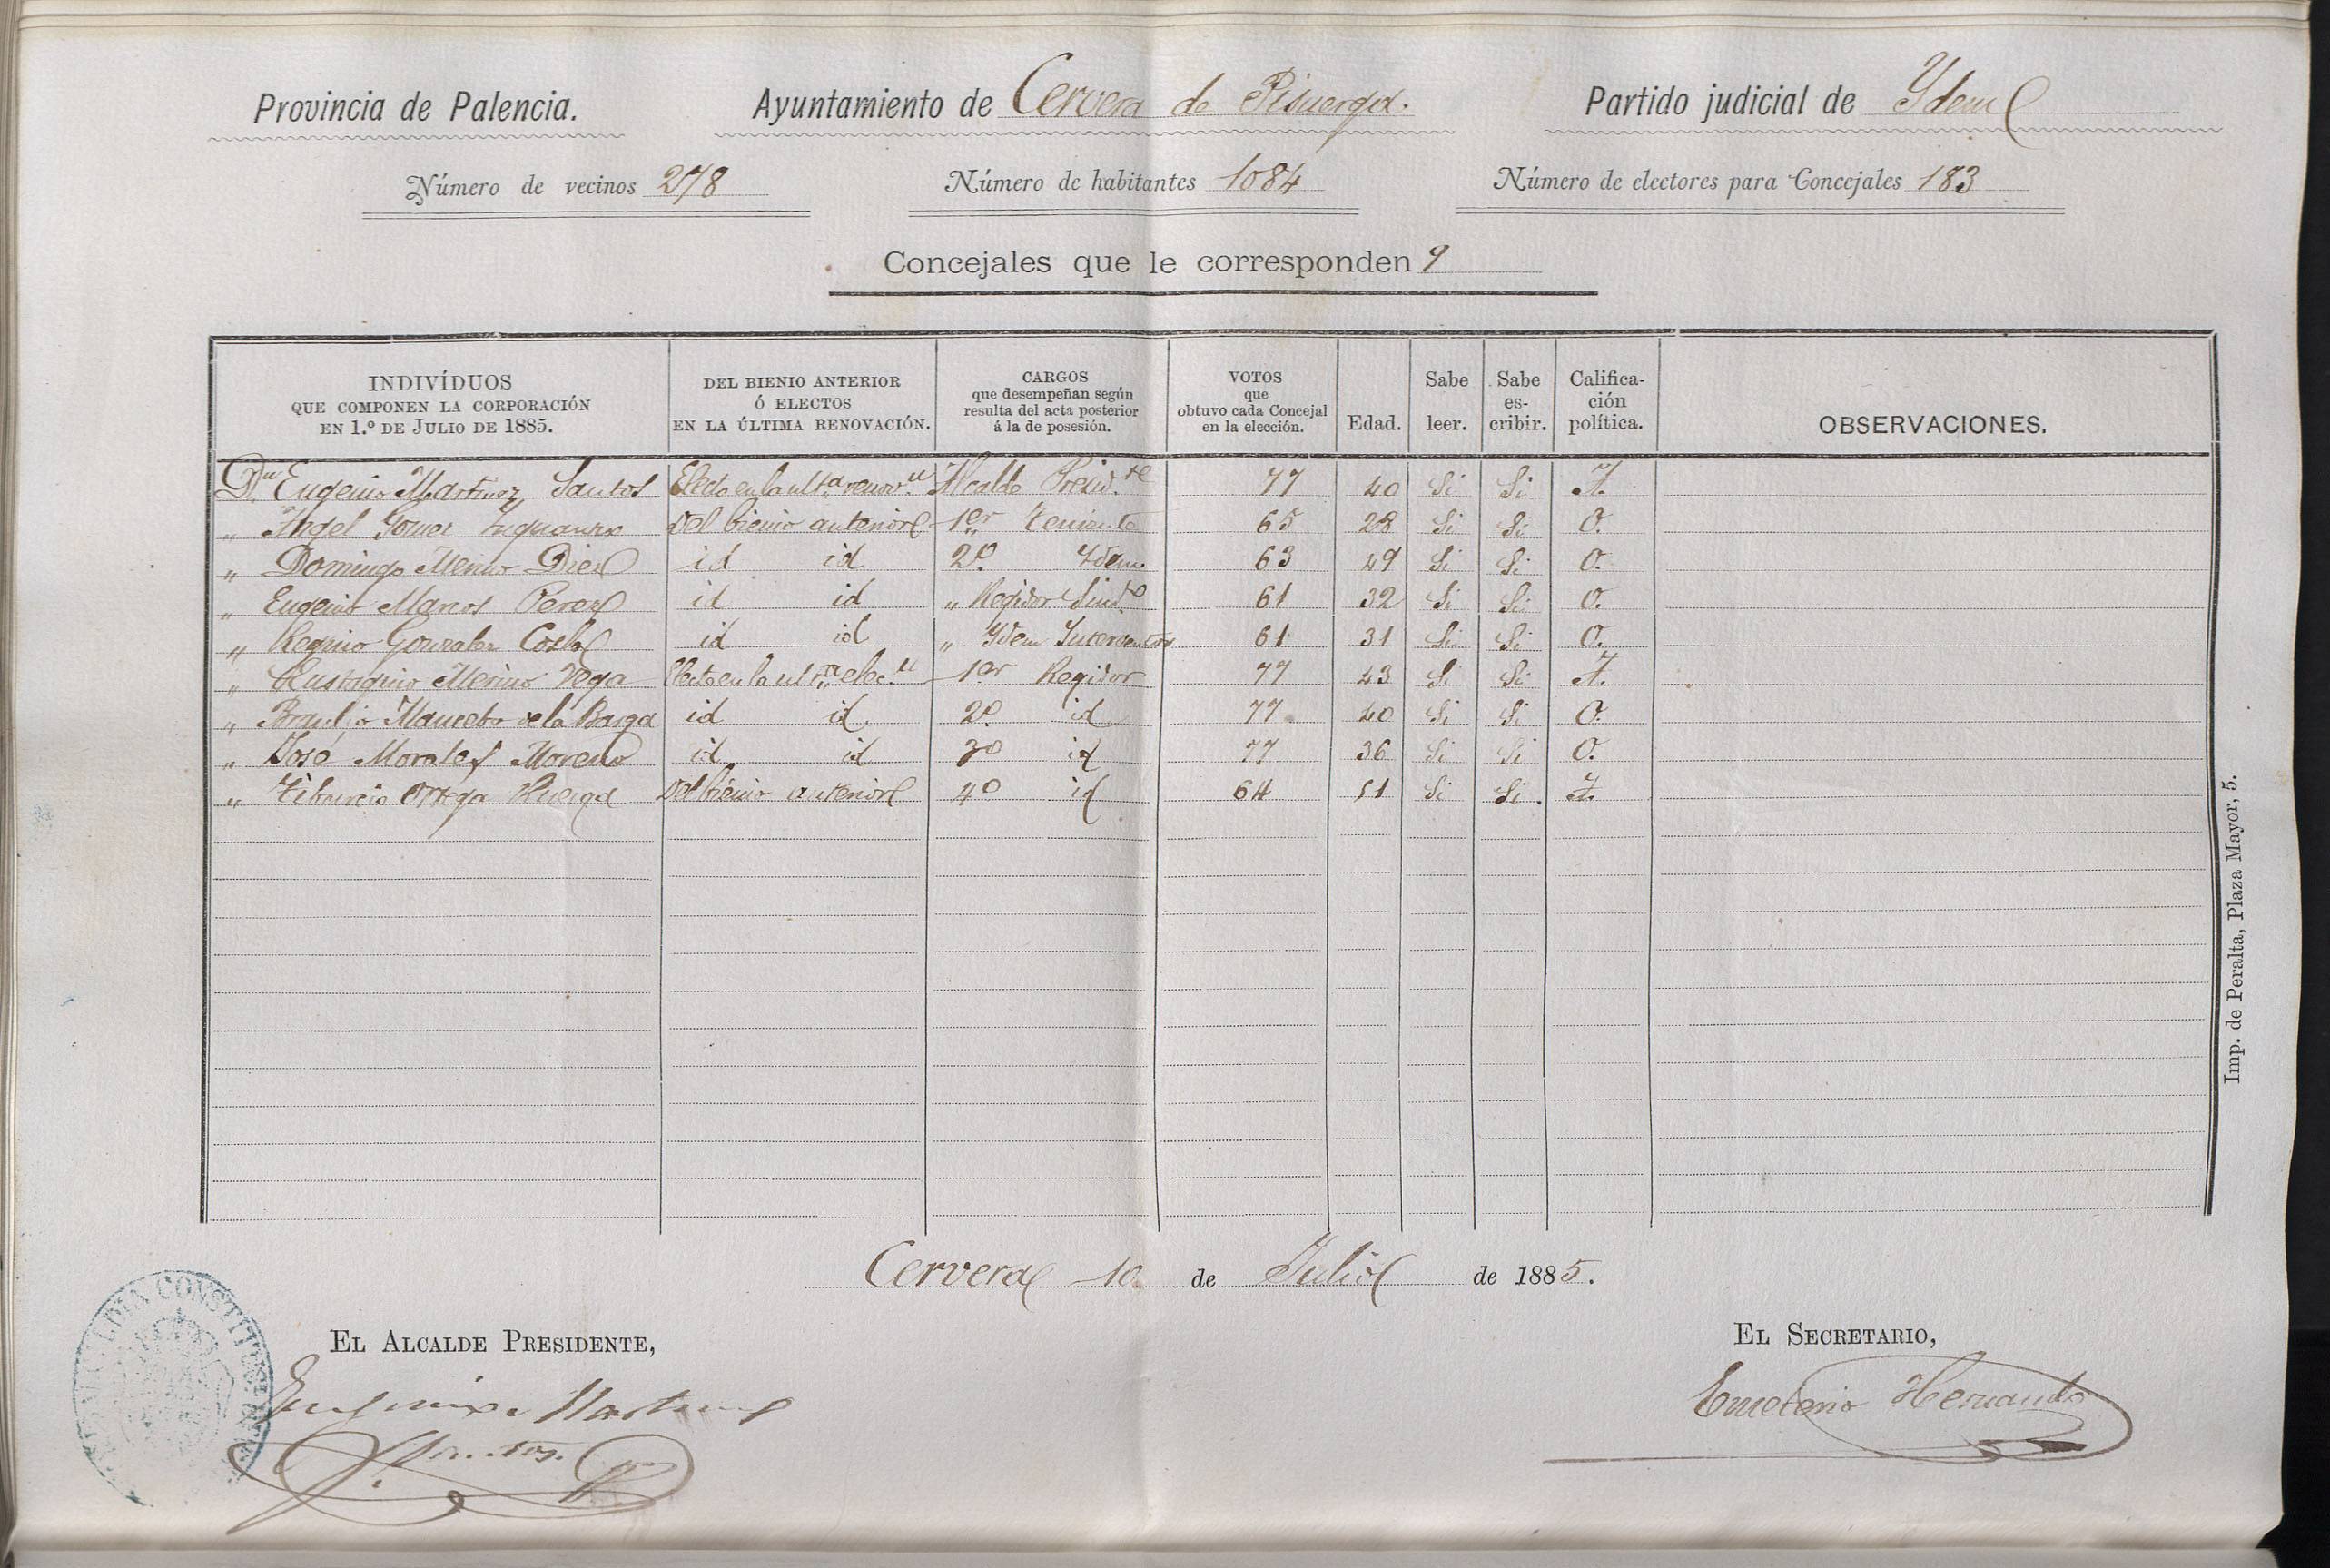 Provincia de Palencia. Ayuntamiento de Cervera de Pisuerga. Partido judicial de Ydem
Número de vecinos 278 Número de habitantes 1084 Número de electores para Concejales 183
Concejales que le corresponden 9
INDIVÍDUOS QUE COMPONEN LA CORPORACIÓN EN 1.º DE JULIO DE 1885. DEL BIENIO ANTERIOR Ó ELECTOS EN LA ÚLTIMA RENOVACIÓN. CARGOS que desempeñan según resulta del acta posterior á la de posesión. VOTOS que obtuvo cada Concejal en la elección. Edad. Sabe leer. Sabe es-cribir. Califica-ción política. OBSERVACIONES.
Dn Eugenio Martinez Santos Electo en la ultª renovn Alcalde Presidte 77 40 Si Si
" Angel Gomez Del bienio anterior 1er Teniente 65 28 Si Si O.
" Domingo Merino Diez id id 2º Ydem 63 49 Si Si O.
" Eugenio Perez id id " Regidor Sindº 61 32 Si Si O.
" Regino Gonzalez id id " Ydem Interventor 61 31 Si Si O.
" Merino Vega Electo en la ultª elecn 1er Regidor 77 43 Si Si
" Braulio Mancebo de la Barga id id 2º id 77 40 Si Si O.
" José Morales Moreno id id 3º id 77 36 Si Si O.
" Tiburcio Ortega Del bienio anterior 4º id 64 51 Si Si.
Imp. de Peralta, Plaza Mayor, 5.
Cervera 10 de Julio de 1885.
EL ALCALDE PRESIDENTE, EL SECRETARIO,
Eugenio Martinez Emeterio Hernando
Santos.